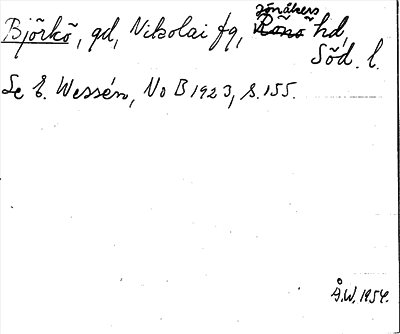 Björkö, gd, Nikolai fg, Jönåkers Rönö hd,
Söd. l.
Se E. Wessén, No B 1923, s. 155.
Å.W. 1954.